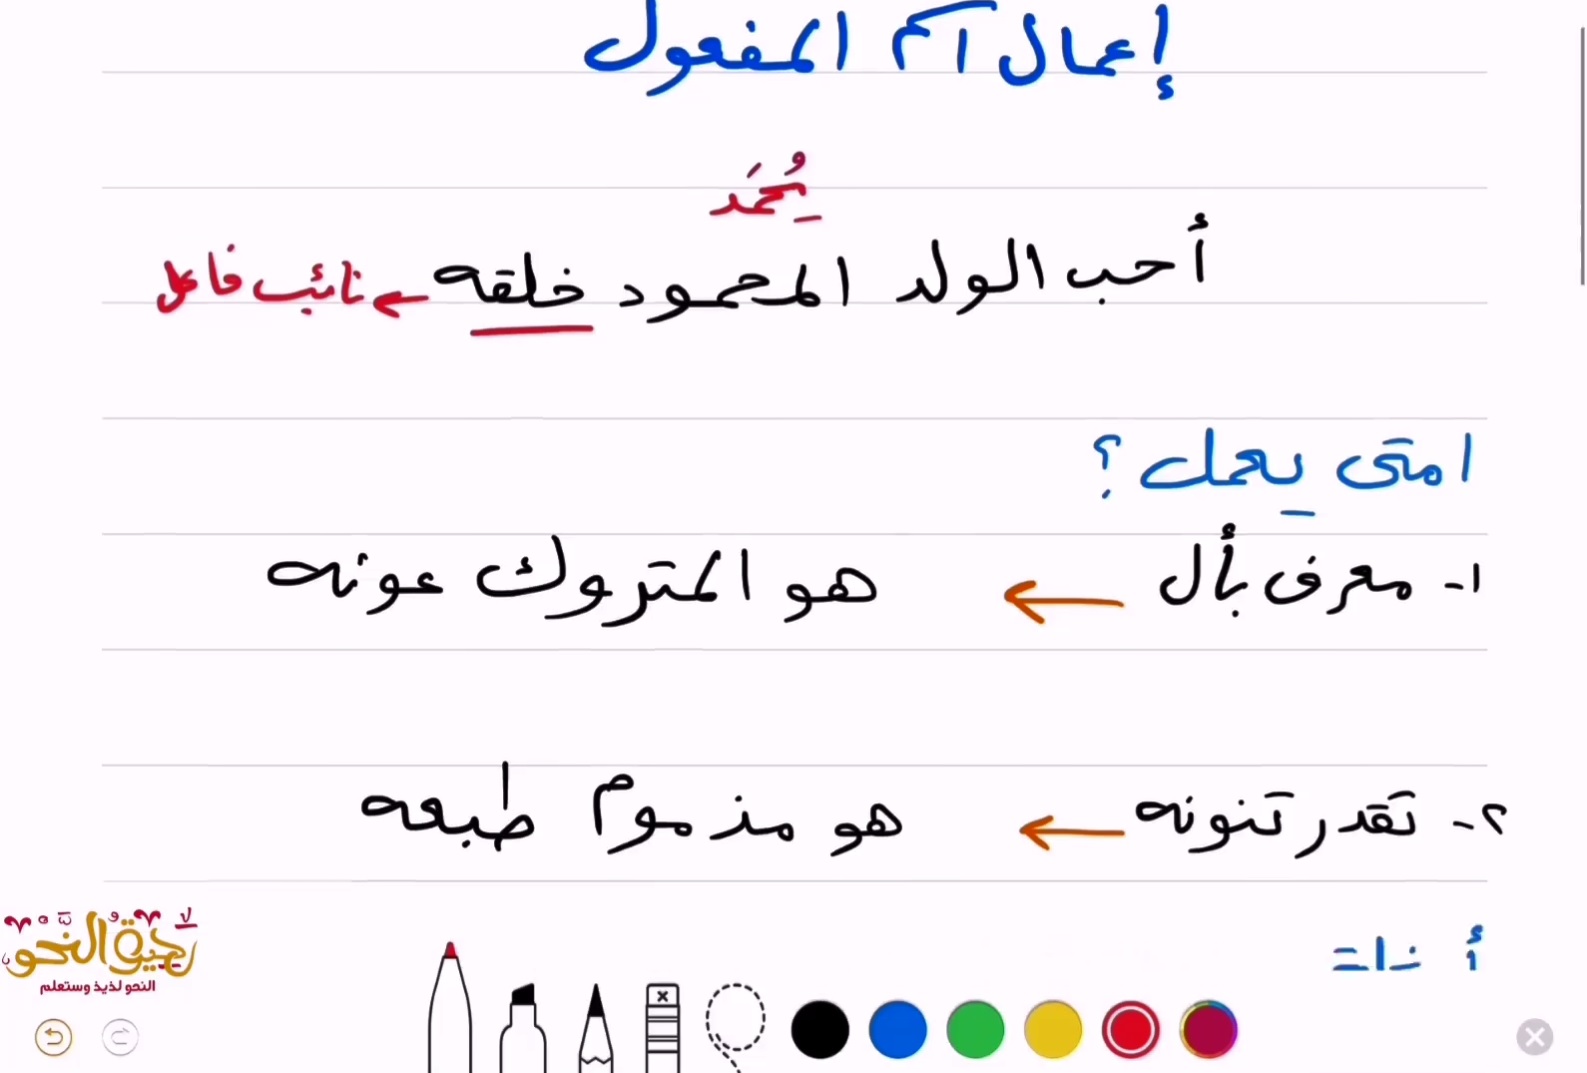 إعمال اسم المفعول
يُحمَد
أحب الولد المحمود خلقه ← نائب فاعل
امتى يعمل؟
١- معرف بأل ← هو المتروك عونه
٢- تقدر تنونه ← هو مذموم طبعه
أمثلة
رحيق النحو
النحو لذيذ وستعلم